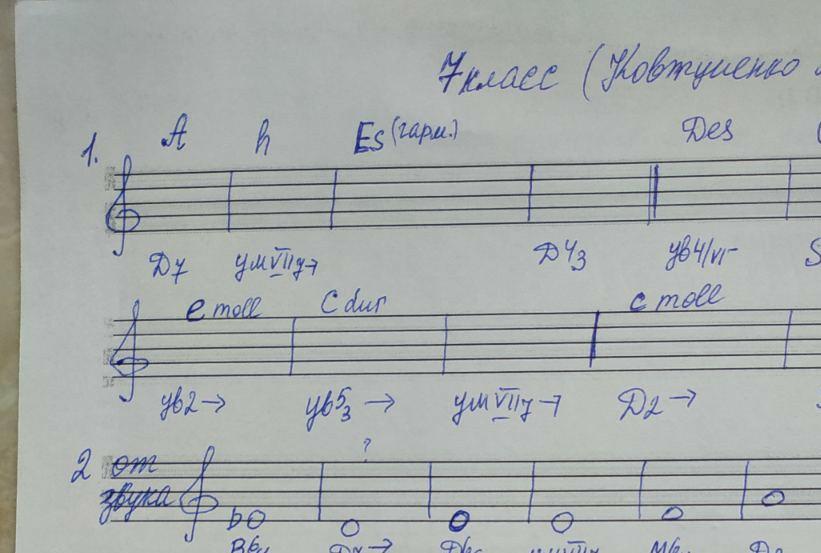 7 класс (Ковтуненко
1. A h Es (гарм.) Des
D7 умVII7→ D4/3 ув4/VI
e moll C dur c moll
ув2→ ув5/3→ умVII7→ D2→
2 от ?
звука